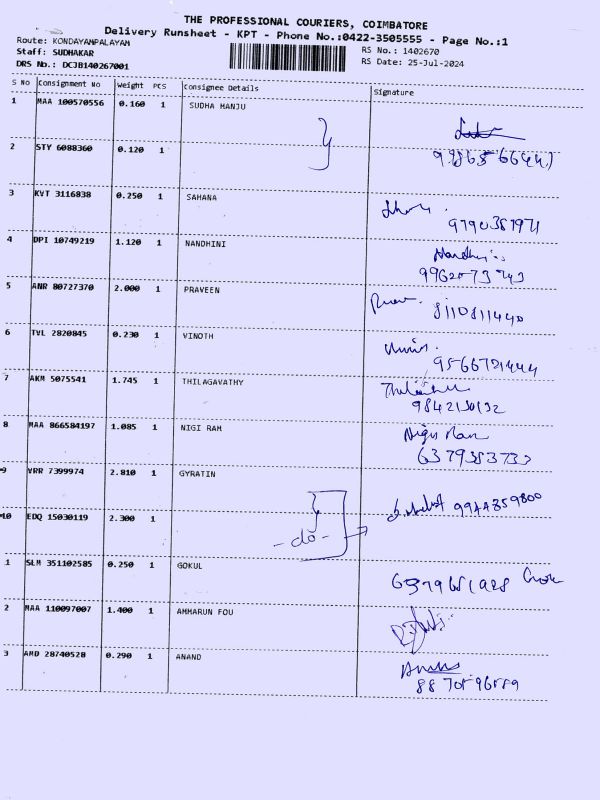 THE PROFESSIONAL COURIERS, COIMBATORE
Delivery Runsheet - KPT - Phone No.:0422-3505555 - Page No.:1
Route: KONDAYAMPALAYAM
RS No.: 1402670
Staff: SUDHAKAR
RS Date: 25-Jul-2024
DRS No.: DCJB140267001
S No Consignment No Weight PCS Consignee Details Signature
1 MAA 100570556 0.160 1 SUDHA MANJU
2 STY 6088360 0.120 1
3 KVT 3116838 0.250 1 SAHANA
9790387971
4 DPI 10749219 1.120 1 NANDHINI Nandhini
5 ANR 80727370 2.000 1 PRAVEEN
8110811440
6 TVL 2820845 0.230 1 VINOTH
9566721444
7 AKM 5075541 1.745 1 THILAGAVATHY
9842130132
8 MAA 866584197 1.085 1 NIGI RAM Nigi Ram
6379383733
9 VRR 7399974 2.810 1 GYRATIN
9944359800
10 EDQ 15030119 2.300 1
- do -
1 SLM 351102585 0.250 1 GOKUL
2 MAA 110097007 1.400 1 AMMARUN FOU
3 AMD 28740528 0.290 1 ANAND